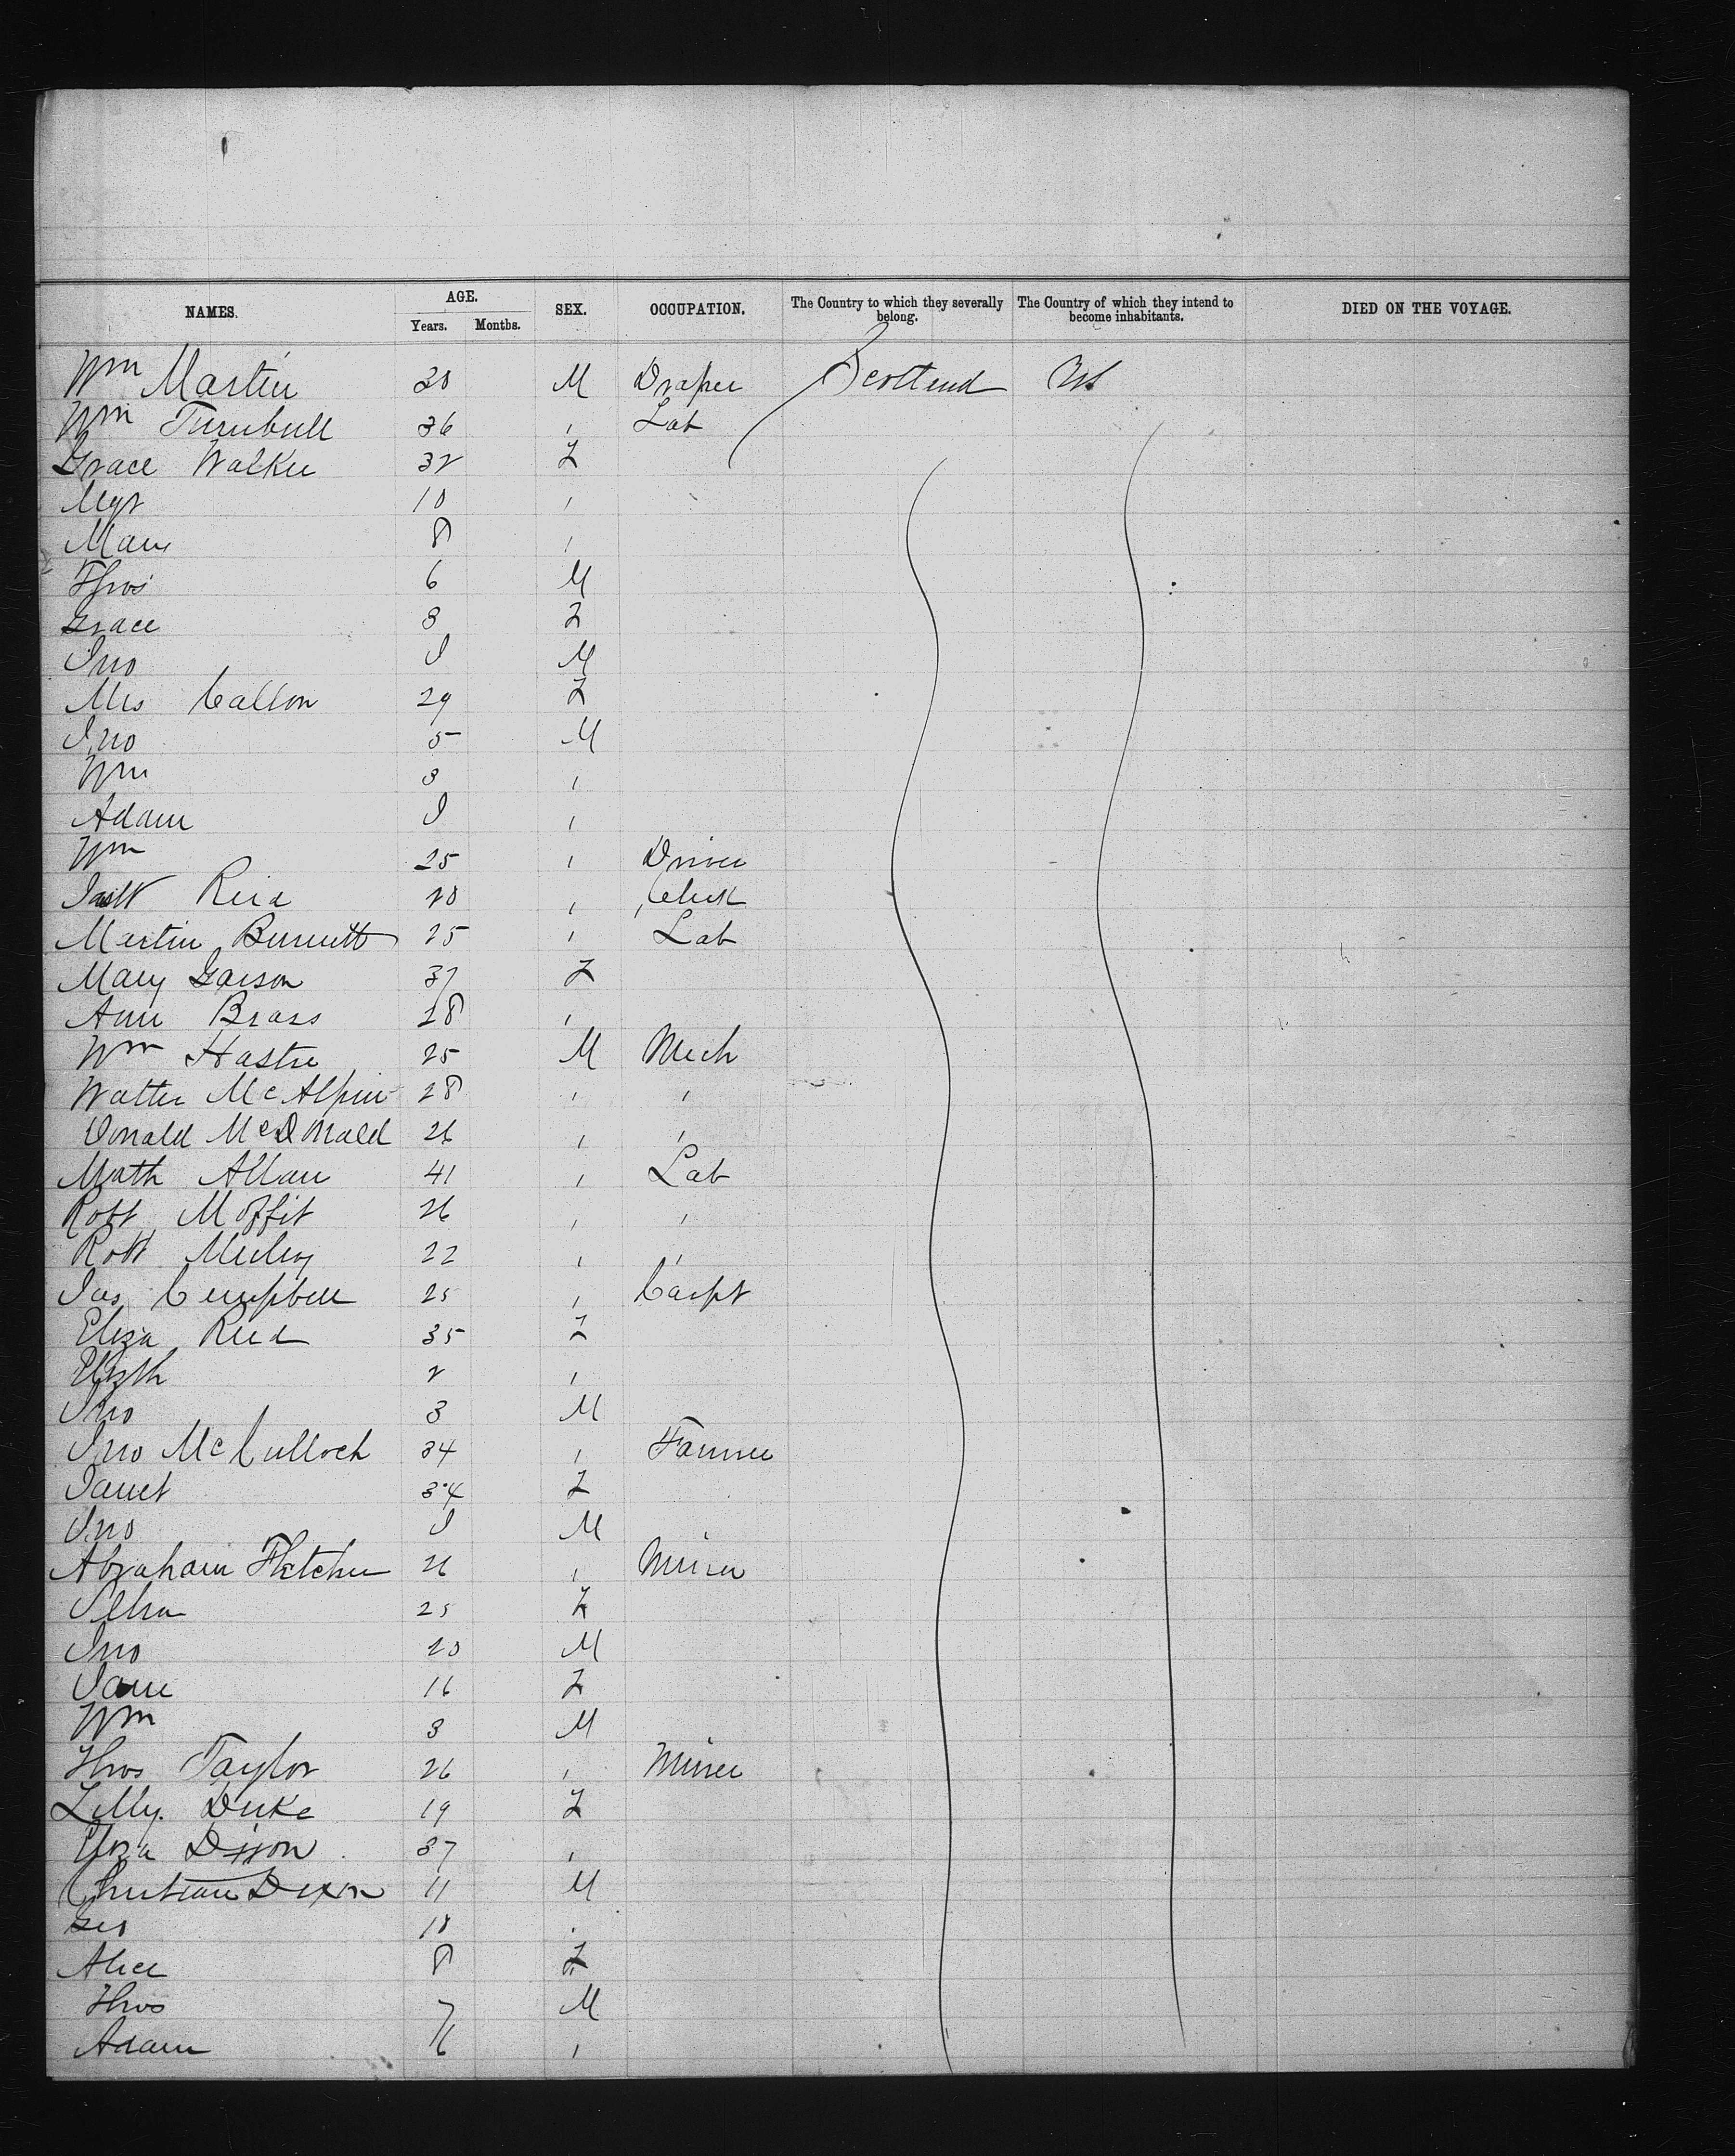 NAMES. AGE. Years. Months. SEX. OCCUPATION. The Country to which they severally belong. The Country of which they intend to become inhabitants. DIED ON THE VOYAGE.
Wm Martin 30 M Draper Scotland US
Wm Turnbull 36 " Lab
Grace Walker 32 F
Mgt 10 "
Mary 8 "
Thos 6 M
Grace 3 F
Jno I M
Mrs Callon 29 F
Jno 5 M
Wm 3 "
Adam I "
Wm 25 " Driver
Reid 20 " Clerk
Martin Burnett 25 " Lab
Mary Garson 37 F
Ann Brass 28 "
Wm Hastie 25 M Mech
Walter McAlpin 28 " "
Donald McDonald 26 " "
Math Allan 41 " Lab
Robt Moffit 26 " "
Robt 22 " "
Jas Campbell 25 " Carpt
Eliza Reid 35 F
Elizth 2 "
Jno 3 M
Jno McCulloch 34 " Farmer
Janet 34 F
Jno I M
Abraham Fletcher 26 " Miner
25 F
Jno 20 M
Jane 16 F
Wm 3 M
Thos Taylor 26 " Miner
Lilly Duke 19 F
Eliza Dixon 37 "
Christian Dixon 11 M
Geo 10 "
Alice 8 F
Thos 7 M
Adam 6 "